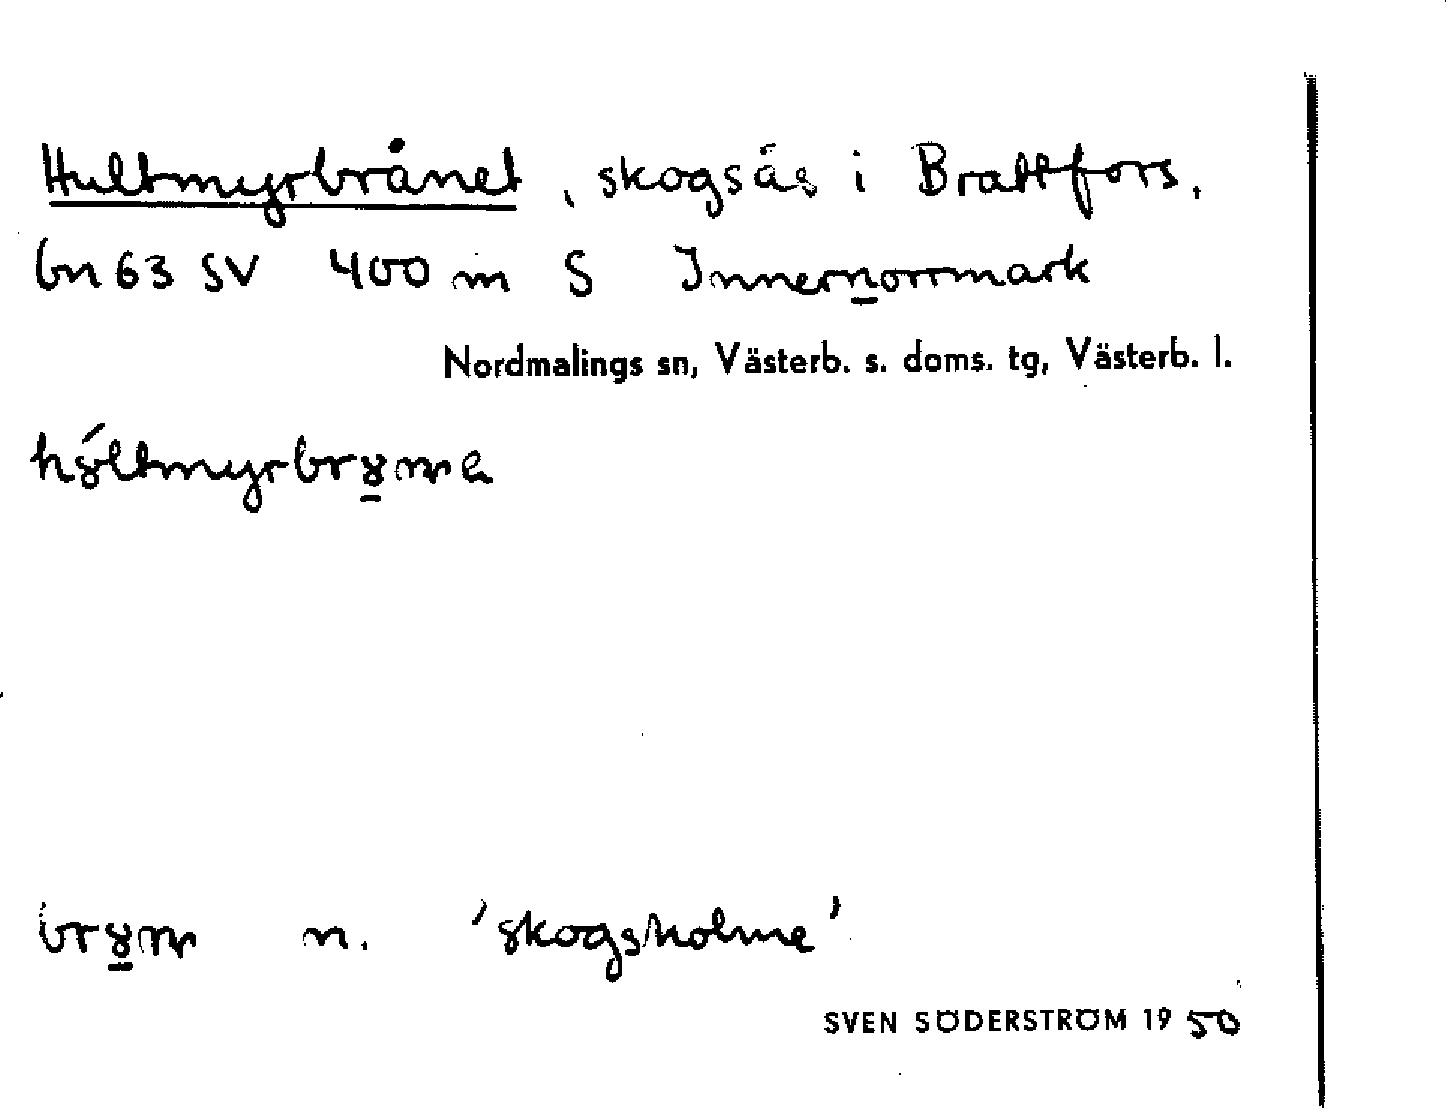 Hultmyrbrånet, skogsås i Brattfors,
bn 63 SV 400 m S Innernorrmark
Nordmalings sn, Västerb. s. doms. tg, Västerb. l.
n. 'skogsholme'
SVEN SÖDERSTRÖM 1950